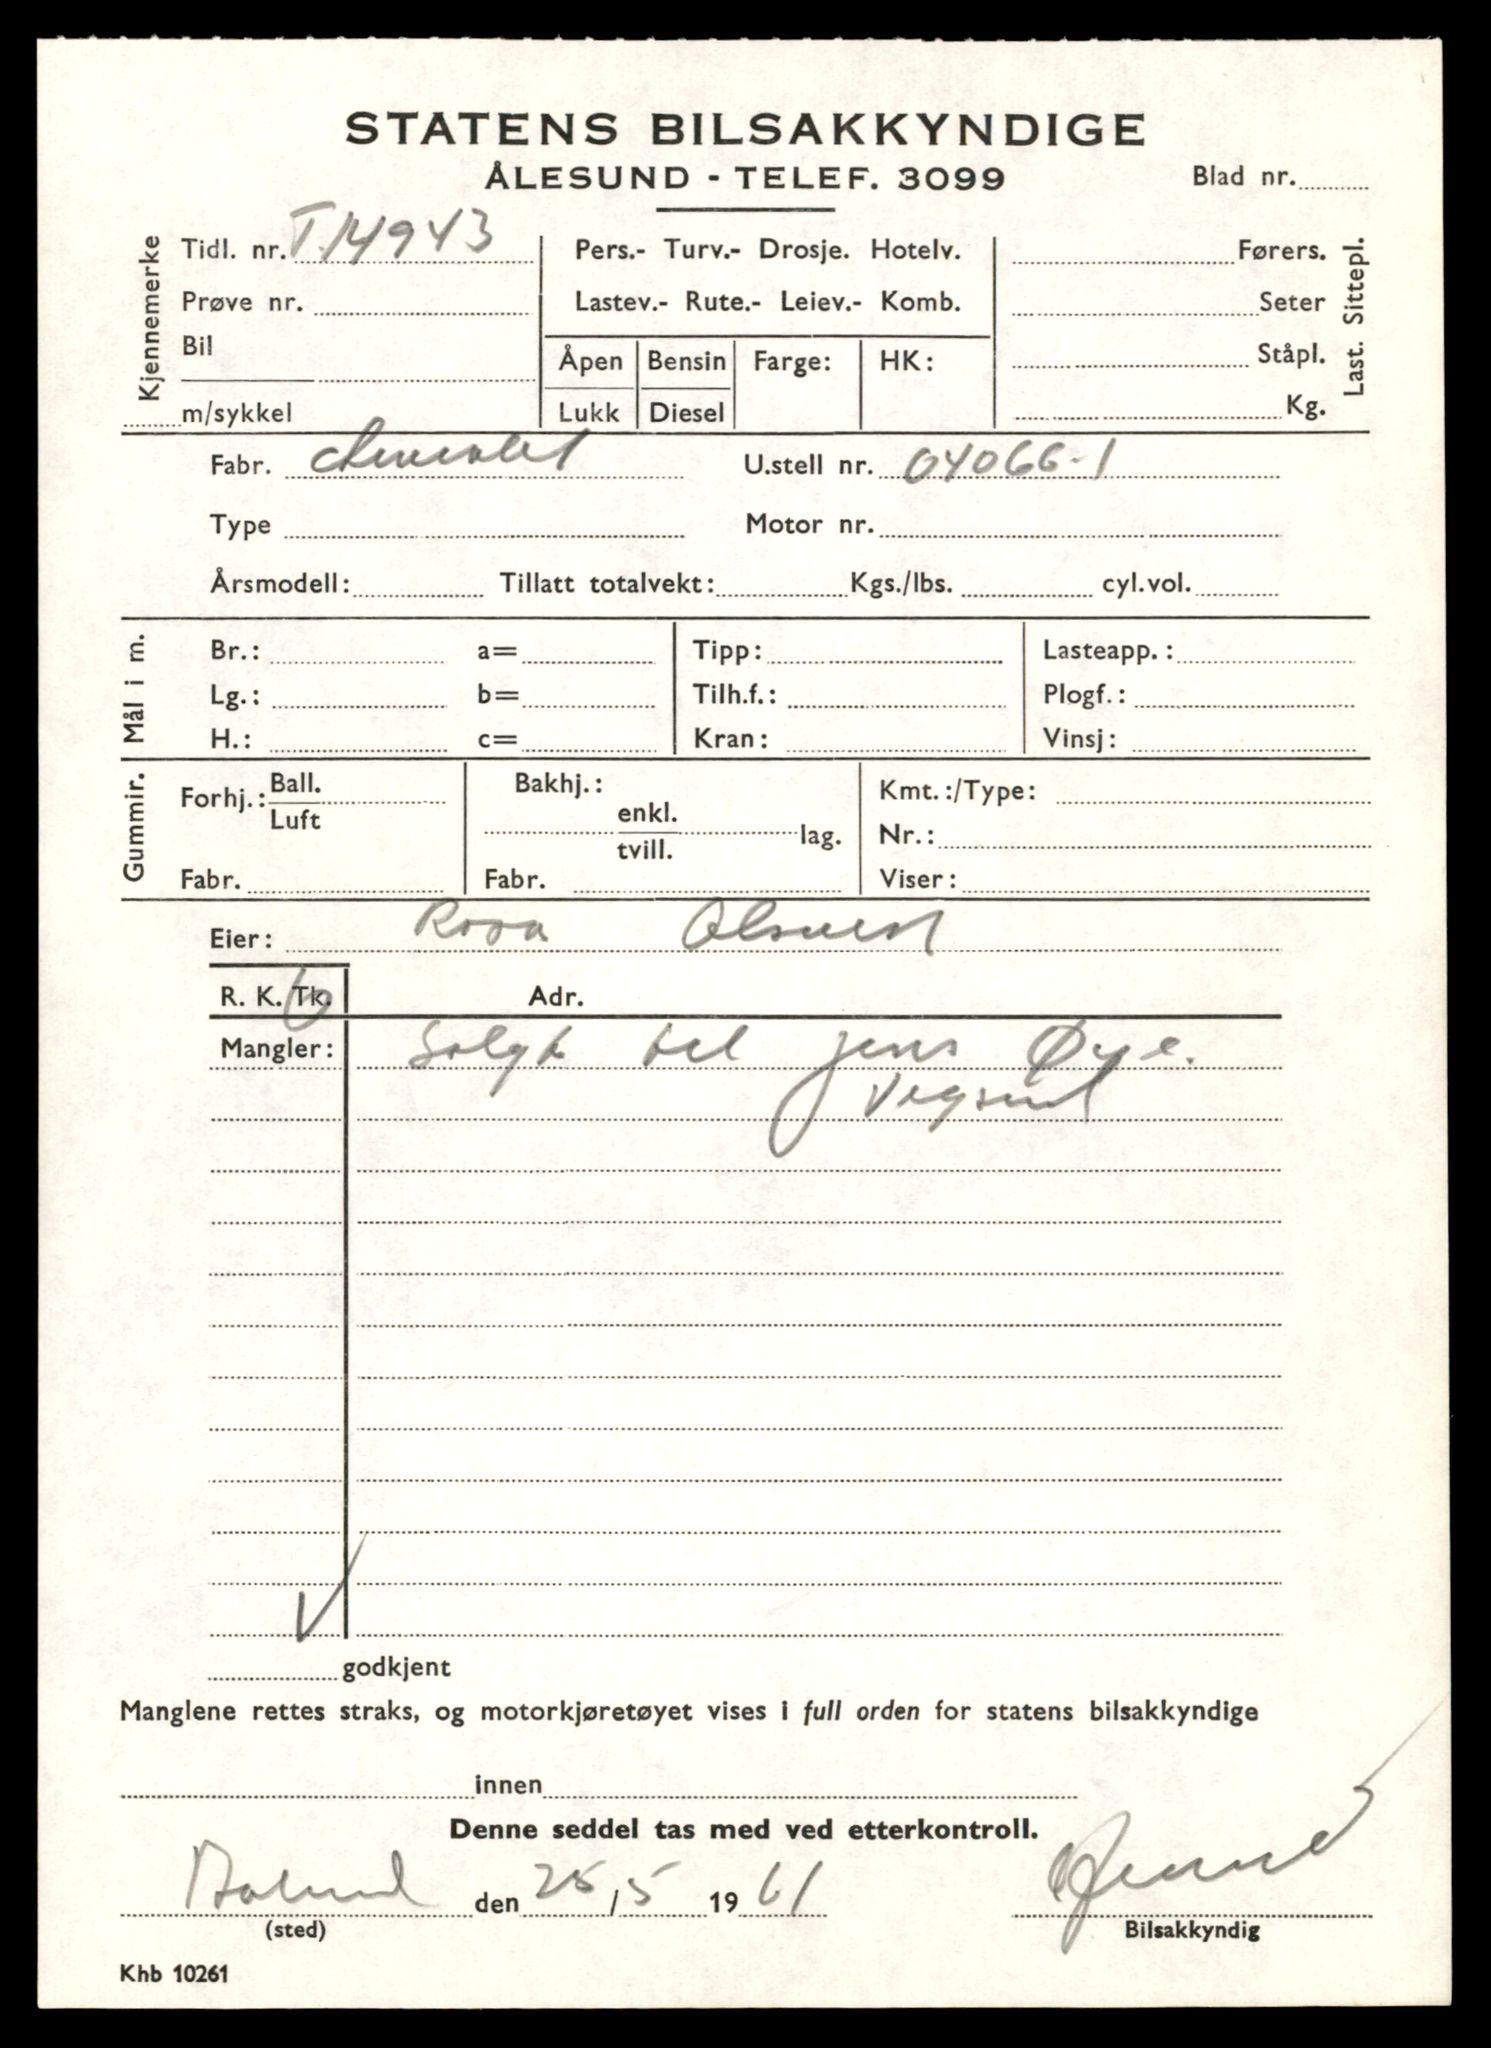 STATENS BILSAKKYNDIGE
ÅLESUND - TELEF. 3099
Blad nr.
Kjennemerke
Tidl. nr. T.14943
Prøve nr.
Bil
m/sykkel
Pers.- Turv.- Drosje. Hotelv.
Lastev.- Rute.- Leiev.- Komb.
Åpen Bensin Farge: HK:
Lukk Diesel
Førers.
Seter
Ståpl.
Kg.
Last. Sittepl.
Fabr. Chevrolet U.stell nr. 04066-1
Type Motor nr.
Årsmodell: Tillatt totalvekt: Kgs./lbs. cyl.vol.
Mål i m.
Br.: a= Tipp: Lasteapp.:
Lg.: b= Tilh.f.: Plogf.:
H.: c= Kran: Vinsj:
Gummir.
Forhj.: Ball. Luft
Fabr.
Bakhj.:
enkl.
tvill. lag.
Fabr.
Kmt.:/Type:
Nr.:
Viser:
Eier: Rosa
R. K. Tk. Adr.
Mangler: Solgt til Jens Øye.
Vegsund
godkjent
Manglene rettes straks, og motorkjøretøyet vises i full orden for statens bilsakkyndige
innen
Denne seddel tas med ved etterkontroll.
den 25/5 1961
(sted) Bilsakkyndig
Khb 10261